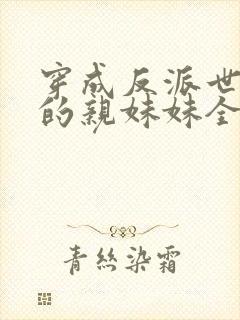 穿成反派世
的親妹妹全
青絲染霜